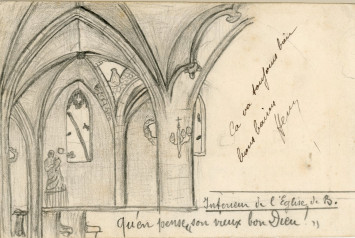 Ça va toujours bien
bons baisers
Henry
Intérieur de l'Eglise de B.
Qu'en pense, son vieux bon Dieu!,,